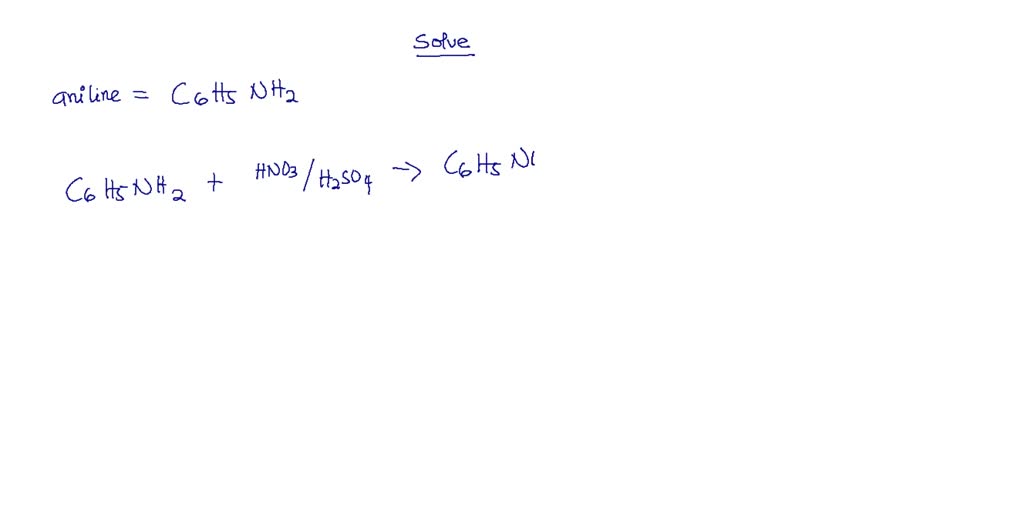 Solve
aniline = C6H5 NH2
C6H5NH2 + HNO3/H2SO4 -> C6H5 N